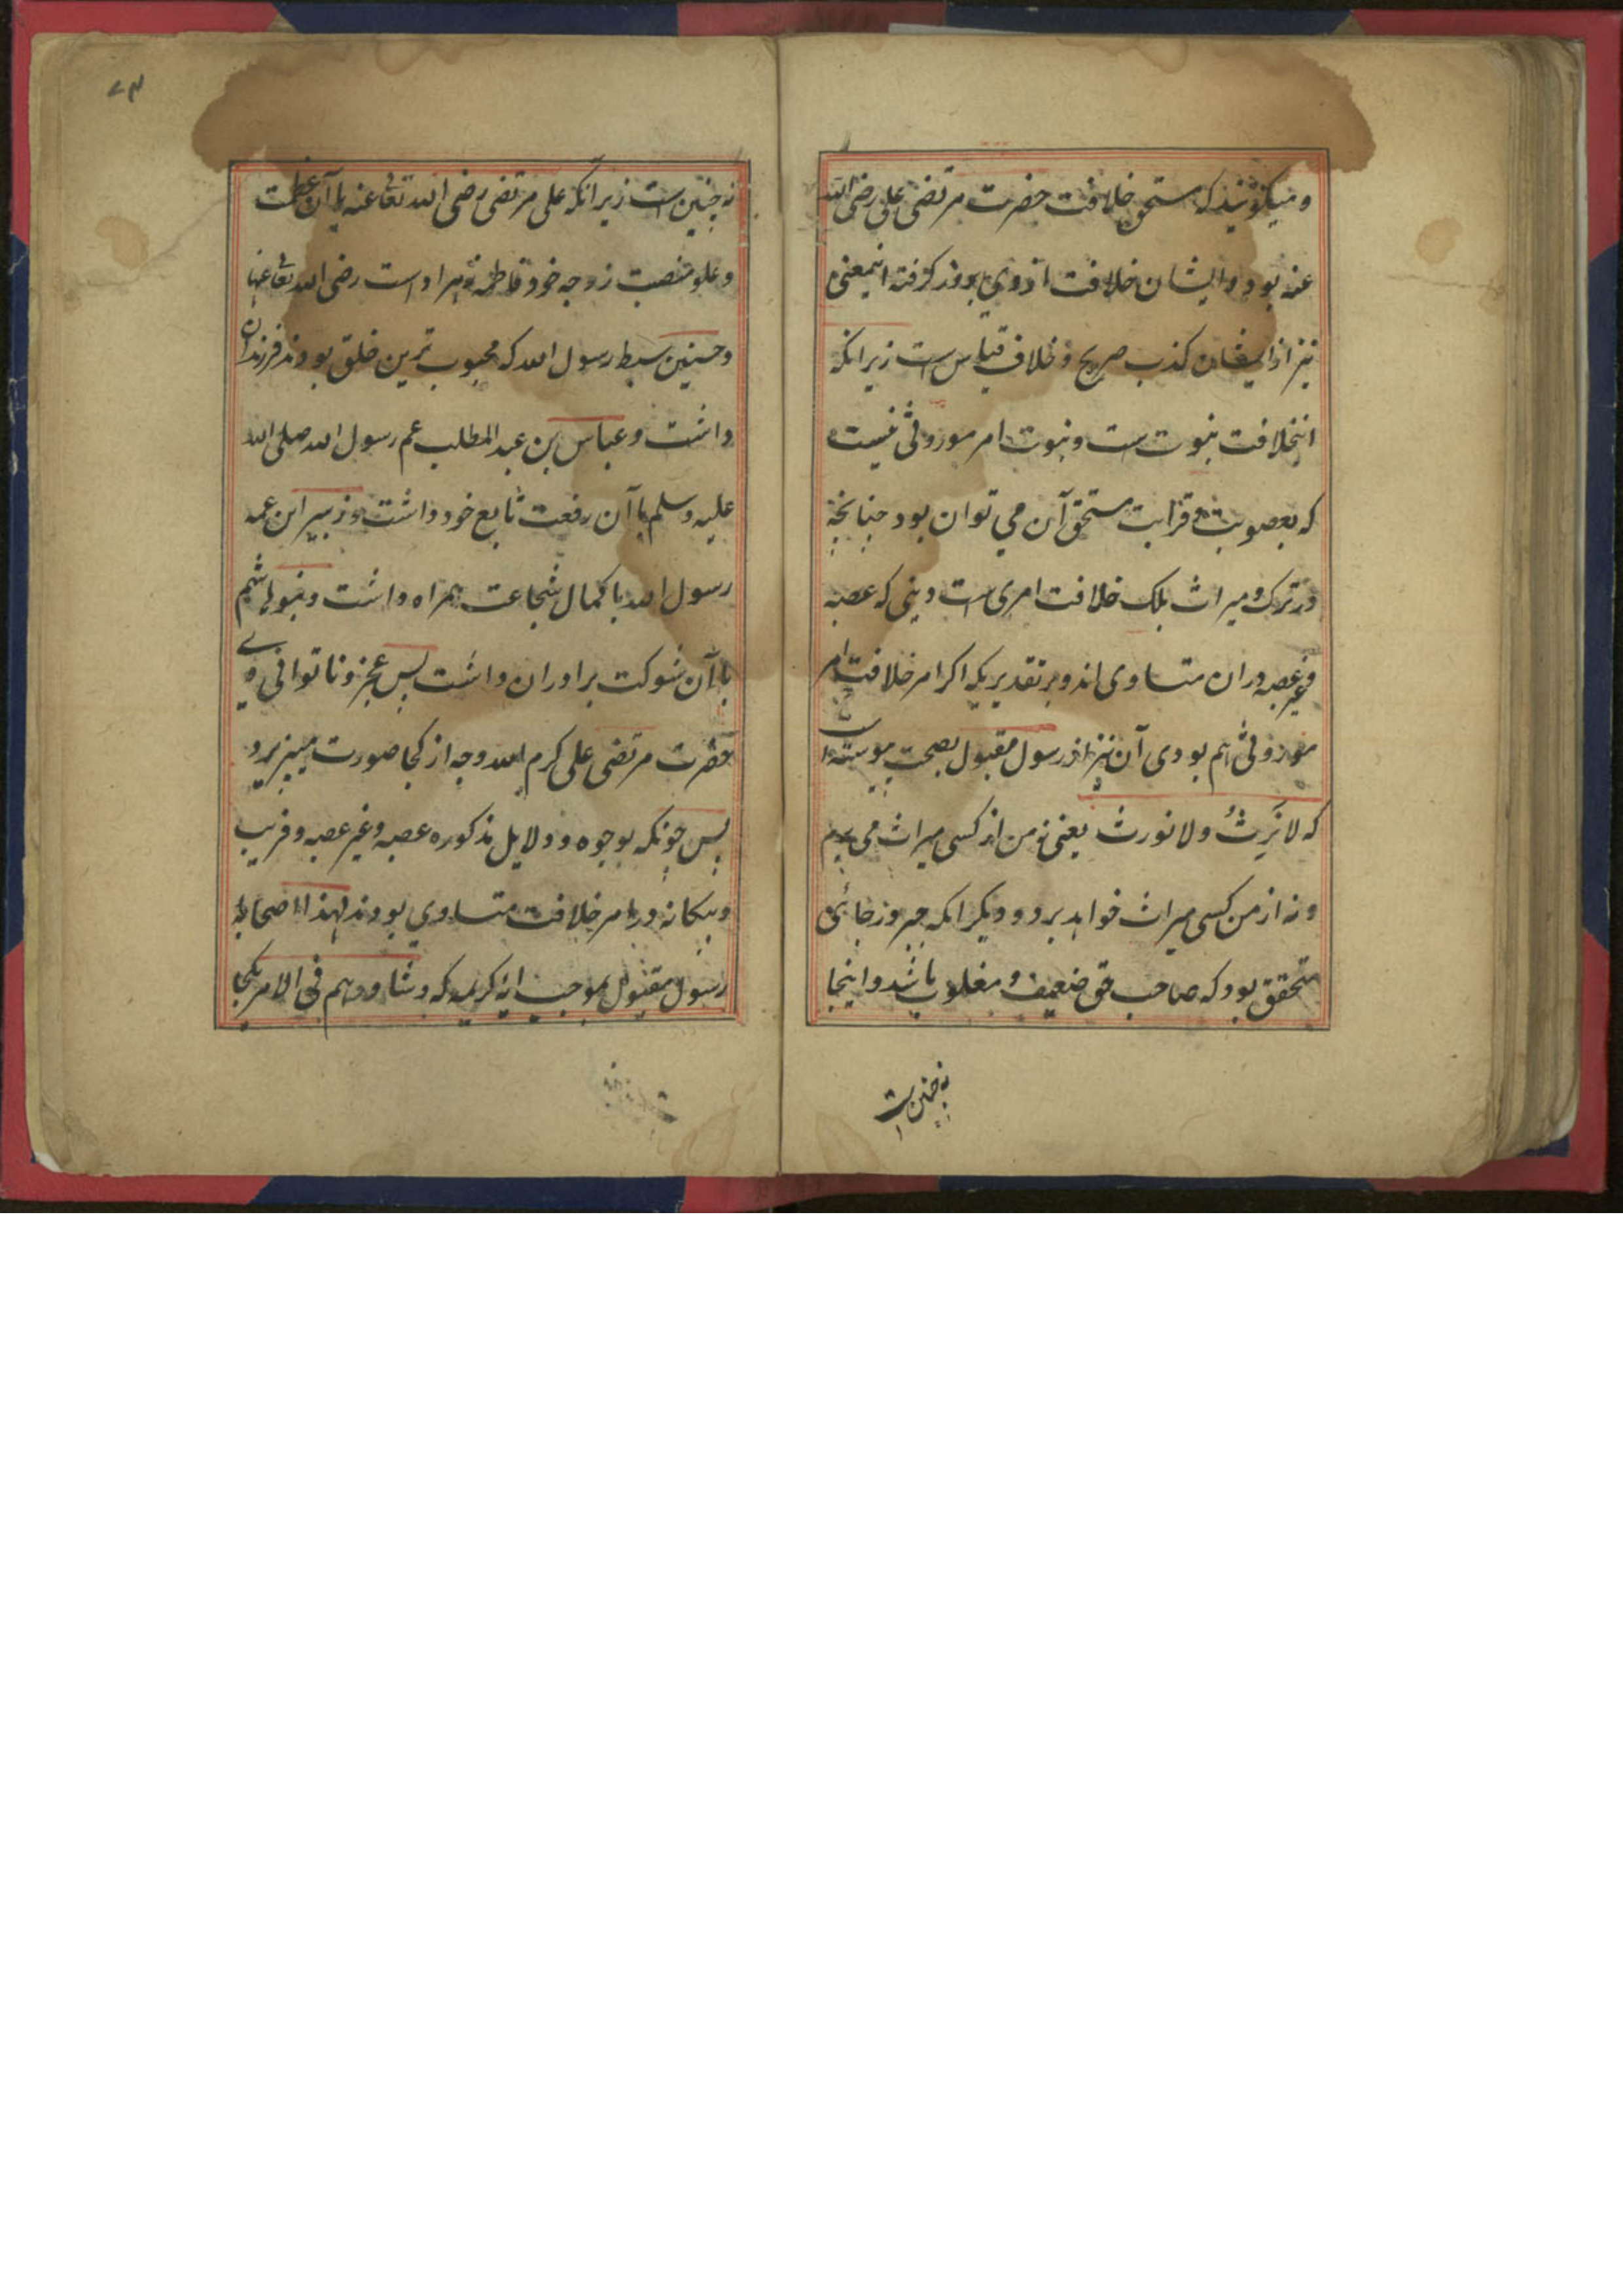 و میکونید که مستحق خلافت حضرت مرتضی علی رضی الله
عنه بود و ایشان خلافت از وی بزور کرفته اینمعنی
نیز از ایشان کذب صریح و خلاف قیاس ست زیرانکه
اینخلافت نبوت ست و نبوت امر موروثی نیست
که بعصوبت و قرابت مستحق آن می توان بود چنانچه
در ترک و میراث بلک خلافت امری ست دینی که عصبه
و غیر عصبه دران متساوی اند و بر تقدیریکه اکر امر خلافت امر
موروثی هم بودی آن نیز از رسول مقبول بصحت پیوسته است
که لا نَرِثُ ولا نورث یعنی نه من از کسی میراث می برم
و نه از من کسی میراث خواهد برد و دیکر انکه جبر و زجائی
متحقق بود که صاحب حق ضعیف و مغلوب باشد و اینجا
نه چنین ست
۷۳
نه چنین ست زیرانکه علی مرتضی رضی الله تعالی عنه با آن عظمت
و علو منصب زوجه خود فاطمه زهرا داست رضی الله تعالی عنها
و حسنین سبط رسول الله که محبوب ترین خلق بودند فرزندان
داشت و عباس بن عبد المطلب عم رسول الله صلی الله
علیه وسلم با آن رفعت تابع خود داشت و زبیر ابن عمه
رسول الله با کمال شجاعت همراه داشت و بنو هاشم
با آن شوکت برادران داشت پس عجز و ناتوانی
حضرت مرتضی علی کرم الله وجه از کجا صورت میپزیرد
پس چونکه بوجوه و دلایل مذکوره عصبه و غیر عصبه و قریب
و بیکانه در امر خلافت متساوی بودند لهذا اصحاب
رسول مقبول بموجب ایه کریمه که و شاورهم فی الامر یکجا